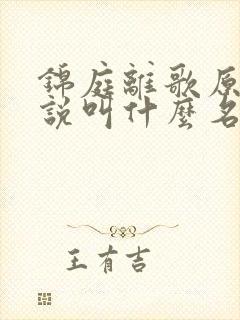 錦庭離歌原
說叫什麼名
王有吉